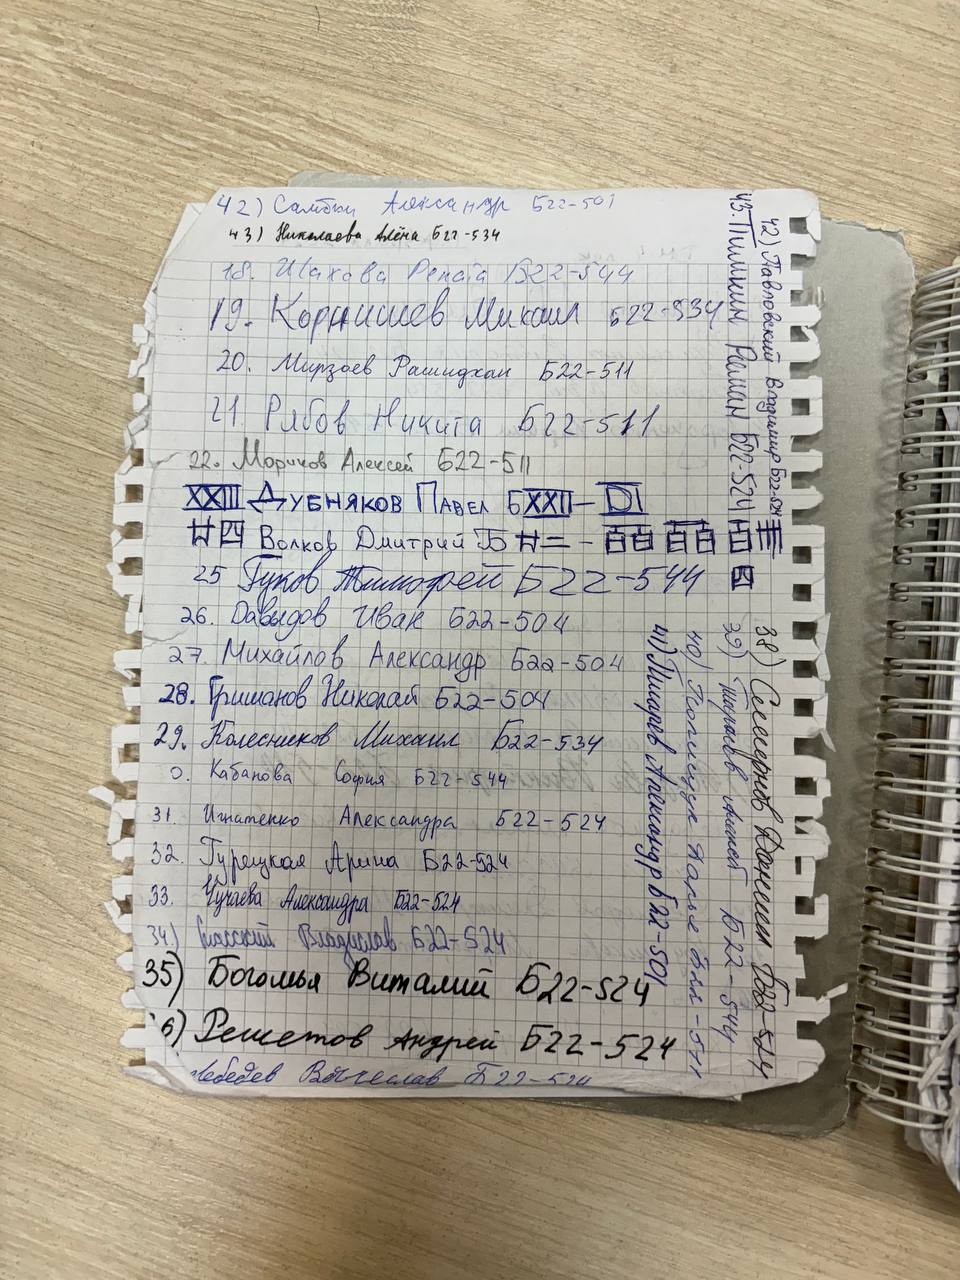 42) Самбюи Александр Б22-501
43) Николаева Алёна Б22-534
18. Шахова Рената Б22-544
19. Корнишев Михаил Б22-534
20. Мирзоев Рашидхан Б22-511
21. Рябов Никита Б22-511
22. Мориков Алексей Б22-511
XXIII Дубняков Павел БXXII-DI
廿四 Волков Дмитрий Б廿二-百百百百百三四
25 Гуков Тимофей Б22-544
26. Давыдов Иван Б22-504
27. Михайлов Александр Б22-504
28. Гришанов Николай Б22-504
29. Колесников Михаил Б22-534
0. Кабанова София Б22-544
31. Игнатенко Александра Б22-524
32. Гурецкая Арина Б22-524
33. Чучаева Александра Б22-524
34.) Спасский Владислав Б22-524
35) Богомья Виталий Б22-524
6) Решетов Андрей Б22-524
Лебедев Вячеслав Б22-524
42) Павловский Владимир Б22-524
43. Пимкин Роман Б22-524
38) Селиверстов Даниил Б22-524
39) Алексей Б22-544
40) Дарья Б22-511
41) Александр Б22-501